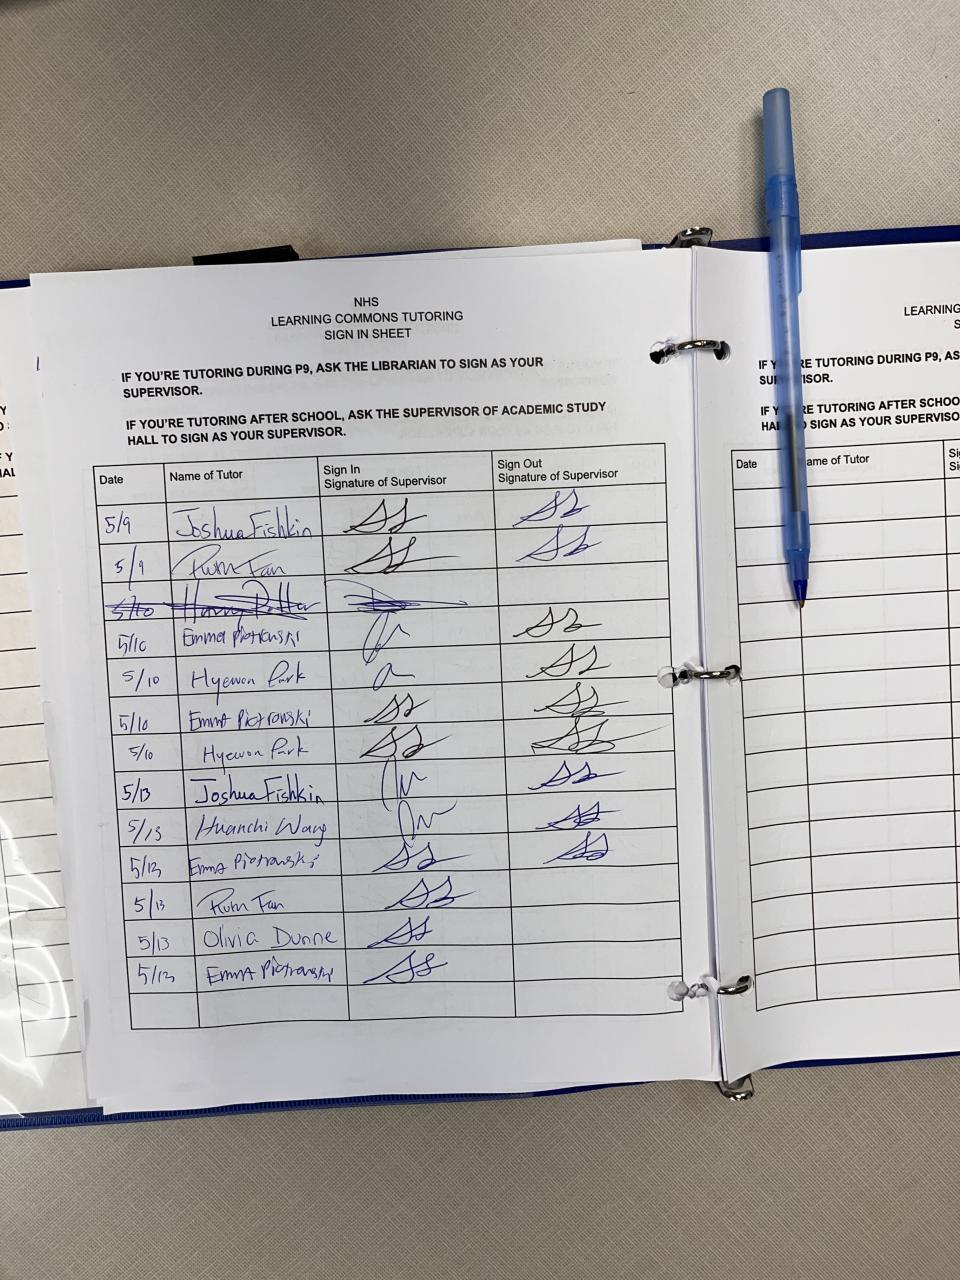 NHS
LEARNING COMMONS TUTORING
SIGN IN SHEET
IF YOU'RE TUTORING DURING P9, ASK THE LIBRARIAN TO SIGN AS YOUR
SUPERVISOR.
IF YOU'RE TUTORING AFTER SCHOOL, ASK THE SUPERVISOR OF ACADEMIC STUDY
HALL TO SIGN AS YOUR SUPERVISOR.
Date Name of Tutor Sign In Signature of Supervisor Sign Out Signature of Supervisor
5/9 Joshua Fishkin SS SS
5/9 Fan SS SS
5/10 Harry Potter
5/10 Emma Piotrowski SS
5/10 Hyewon Park SS
5/10 Emma Piotrowski SS SS
5/10 Hyewon Park SS SS
5/13 Joshua Fishkin SS
5/13 Huanchi Wang SS
5/13 Emma Piotrowski SS SS
5/13 Fan SS
5/13 Olivia Dunne SS
5/13 Emma Piotrowski SS
LEARNING
S
IF Y RE TUTORING DURING P9, AS
SU ISOR.
IF Y RE TUTORING AFTER SCHOO
HAL O SIGN AS YOUR SUPERVISO
Date ame of Tutor Sig
Si